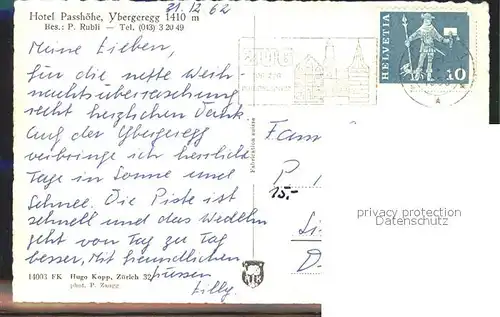 31.12.62
Hotel Passhöhe, Ybergeregg 1410 m
Bes.: P. Rubli — Tel. (043) 3 20 49
Meine Lieben,
für die nette Weih-
nachtsüberraschung
recht herzlichen Dank
Auf der Ybergeregg
verbringe ich herrliche
Tage in Sonne und
Schnee. Die Piste ist
schnell und das Wedeln
geht von Tag zu Tag
besser. Mit freundlichen
Grüssen
Lilly
14003 FK Hugo Kopp, Zürich 32
phot. P. Zaugg
Fabrication suisse
ZUG
HELVETIA
10
Fam
P
15.-
privacy protection
Datenschutz